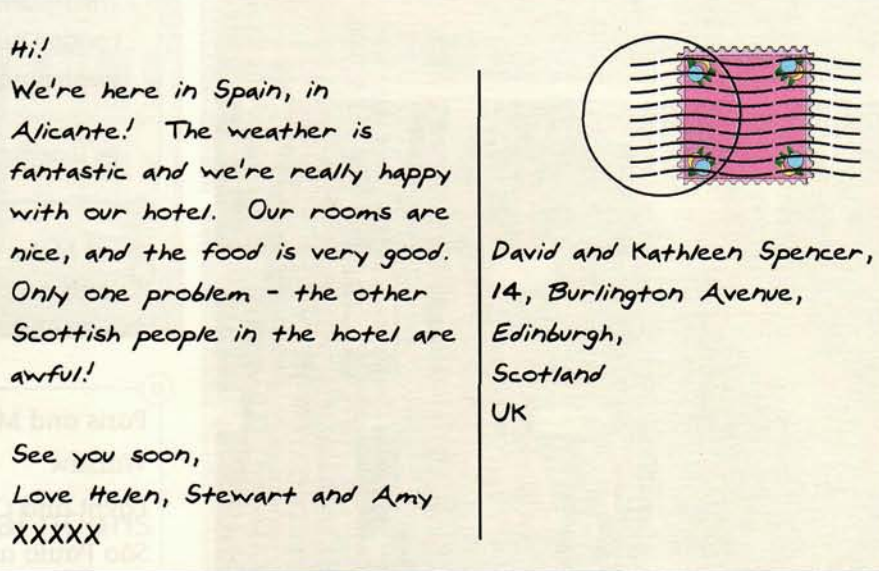 Hi!
We're here in Spain, in
Alicante! The weather is
fantastic and we're really happy
with our hotel. Our rooms are
nice, and the food is very good.
Only one problem - the other
Scottish people in the hotel are
awful!
See you soon,
Love Helen, Stewart and Amy
XXXXX
David and Kathleen Spencer,
14, Burlington Avenue,
Edinburgh,
Scotland
UK